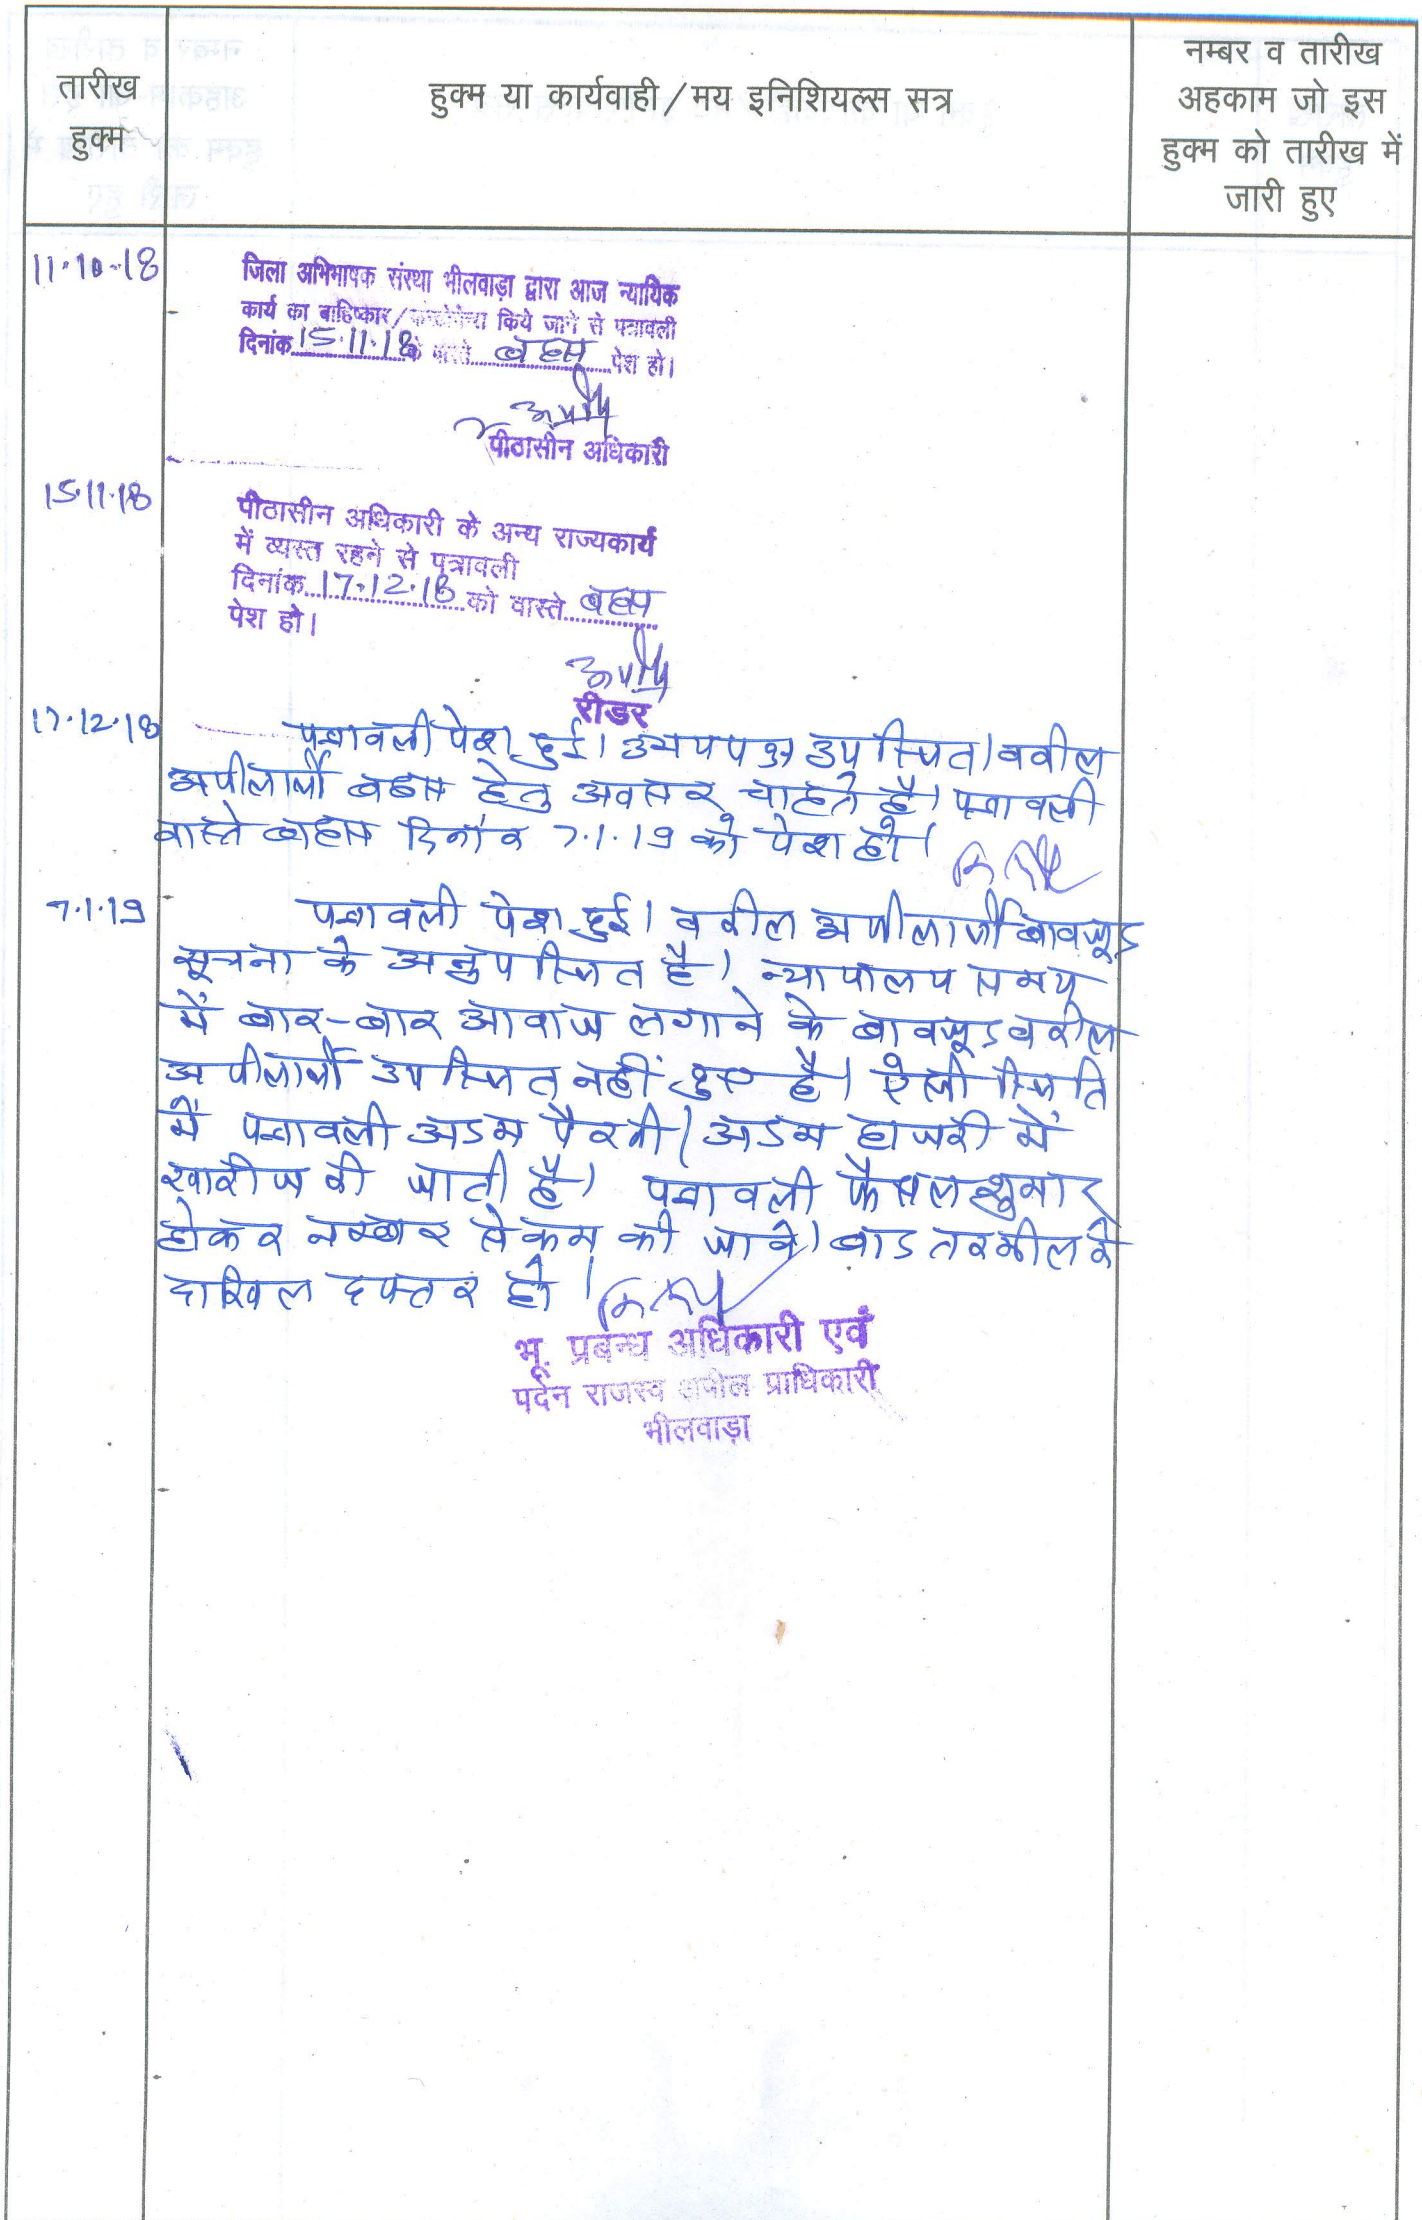 तारीख
हुक्म
हुक्म या कार्यवाही/मय इनिशियल्स सत्र
नम्बर व तारीख
अहकाम जो इस
हुक्म को तारीख में
जारी हुए
11.10.18
जिला अभिभाषक संस्था भीलवाड़ा द्वारा आज न्यायिक
कार्य का बाहिष्कार/ किये जाने से पत्रावली
दिनांक 15.11.18 के वास्ते बहस पेश हो।
पीठासीन अधिकारी
15.11.18
पीठासीन अधिकारी के अन्य राज्यकार्य
में व्यस्त रहने से पत्रावली
दिनांक 17.12.18 को वास्ते बहस
पेश हो।
रीडर
17.12.18
पत्रावली पेश हुई। उभयपक्ष उपस्थित। वकील
अपीलार्थी बहस हेतु अवसर चाहते है। पत्रावली
वास्ते बहस दिनांक 7.1.19 को पेश हो।
7.1.19
पत्रावली पेश हुई। वकील अपीलार्थी बावजूद
सूचना के अनुपस्थित है। न्यायालय समय
में बार-बार आवाज लगाने के बावजूद वकील
अपीलार्थी उपस्थित नहीं हुए है। ऐसी स्थिति
में पत्रावली अदम पैरवी/अदम हाजरी में
खारीज की जाती है। पत्रावली फैसल शुमार
होकर नम्बर से कम की जावे। बाद तकमील के
दाखिल दफ्तर हो।
भू. प्रबन्ध अधिकारी एवं
पदेन राजस्व अपील प्राधिकारी
भीलवाड़ा